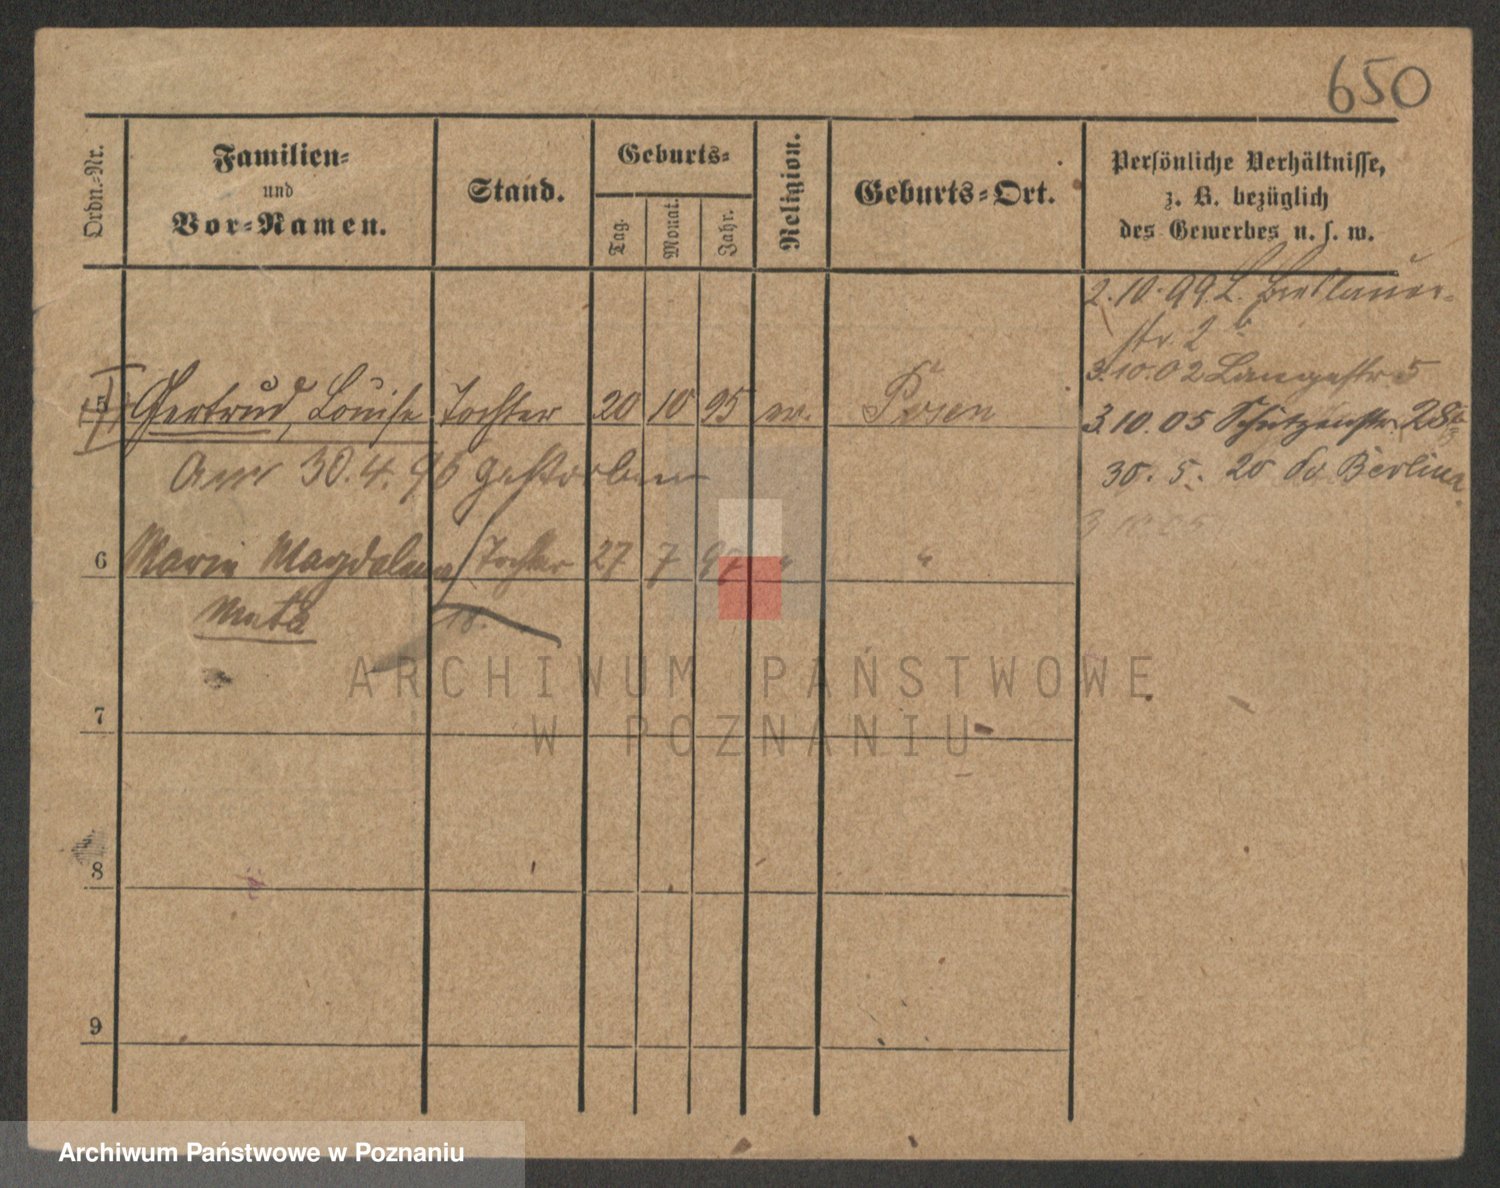 650
Ordn.-Nr.
Familien-
und
Vor-Namen.
Stand.
Geburts-
Tag.
Monat.
Jahr.
Religion.
Geburts-Ort.
Persönliche Verhältnisse,
z. B. bezüglich
des Gewerbes u. s. w.
2.10.99
str. 2
3.10.02 Langestr 5
5 Gertrud, Louise Tochter 20 10 95 ev. Posen
3.10.05 Schützenstr. 28
Am 30.4.96 gestorben
30. 5. 20 Berlin
3.10.05
6 Marie Magdalena Tochter 27 7 97 " "
18.
7
8
9
ARCHIWUM PAŃSTWOWE
W POZNANIU
Archiwum Państwowe w Poznaniu